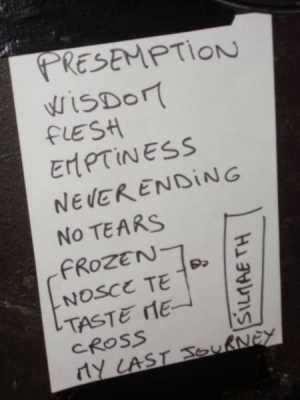 PRESEMPTION
WISDOM
FLESH
EMPTINESS
NEVER ENDING
NO TEARS
FROZEN
NOSCE TE
TASTE ME
CROSS
MY LAST JOURNEY
SILMAETH